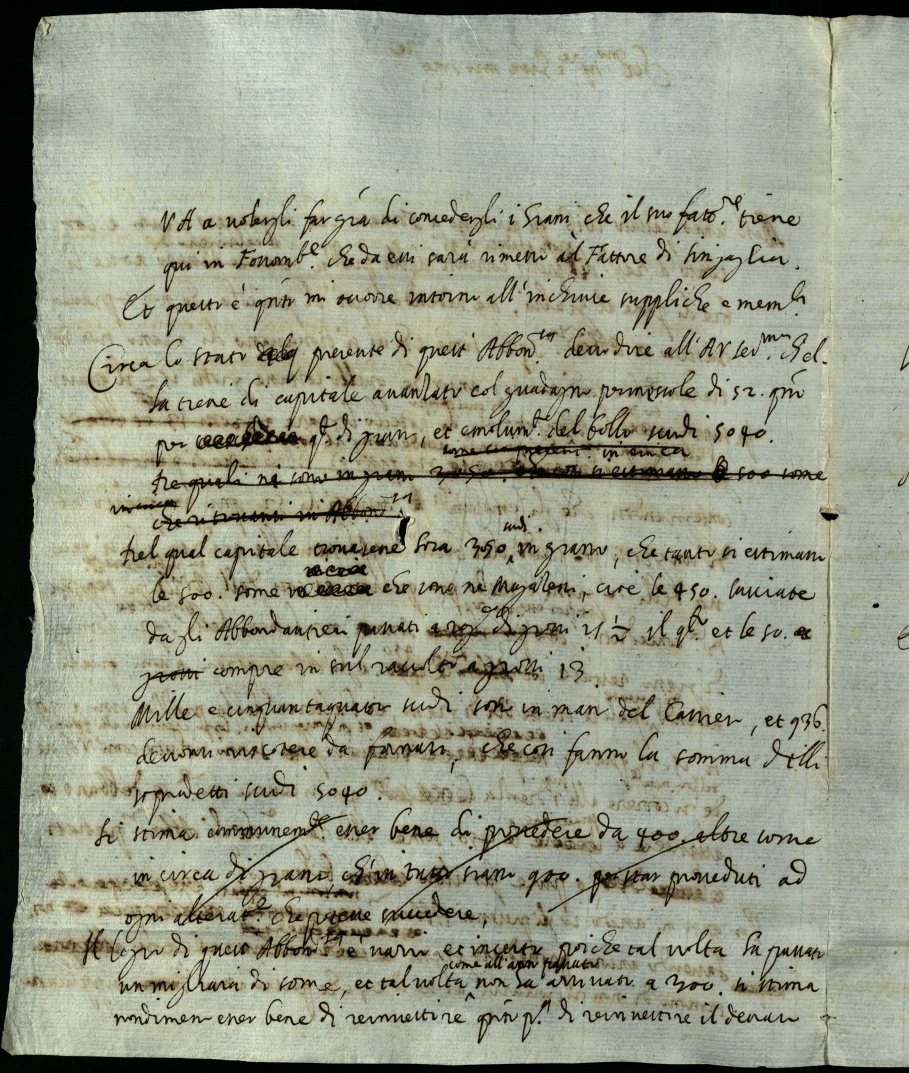 VA a volergli far gra di concedergli i Grani che il suo fatore tiene
qui in Fossomb.e che da essi sarà rimesso al Fattore di Sinigaglia.
Et questo è q.nto mi occorre intorno all'inchiuse suppliche e mem.li
Circa lo stato presente di quest'Abbon.tia devo dire all'A.V. ser.ma ch'el
ha tiene di capitale avanzato col guadagno permissole di s2. p
per q.r di grano, et emolum.ti del bollo scudi 5040.
some in circa
tre quali ne sono in grani 3050. si estimano 500 some
in circa che si trovano in Abbon.tia
Nel qual capitale trovasene sora 3050 scudi in grano, che tanto si estimano
le 500. some che sono ne Magaleni, cioè le 450. lasciate
dagli Abbondantieri passati 15 ½ il q.r et le 50.
grossi compre in sul raccolto a grossi 13
Mille e cinquantaquattro scudi son in man del Cassier, et 936
devonsi riscotere da fornari, che così fanno la somma delli
sopradetti scudi 5040.
Si stima communem.te esser bene di provedere da 400. altre some
in circa di grano, ch'in tutto siano 900. per star proveduti ad
ogni alterat.e che potesse succedere
Il logro di quest'Abbon.tia è vario et incerto poiche tal volta ha passato
come all'anno passato
un migliara di some, et tal volta non ha arrivato a 300. si stima
nondimeno esser bene di reinvestire q.nto p.a di reinvestire il denaro